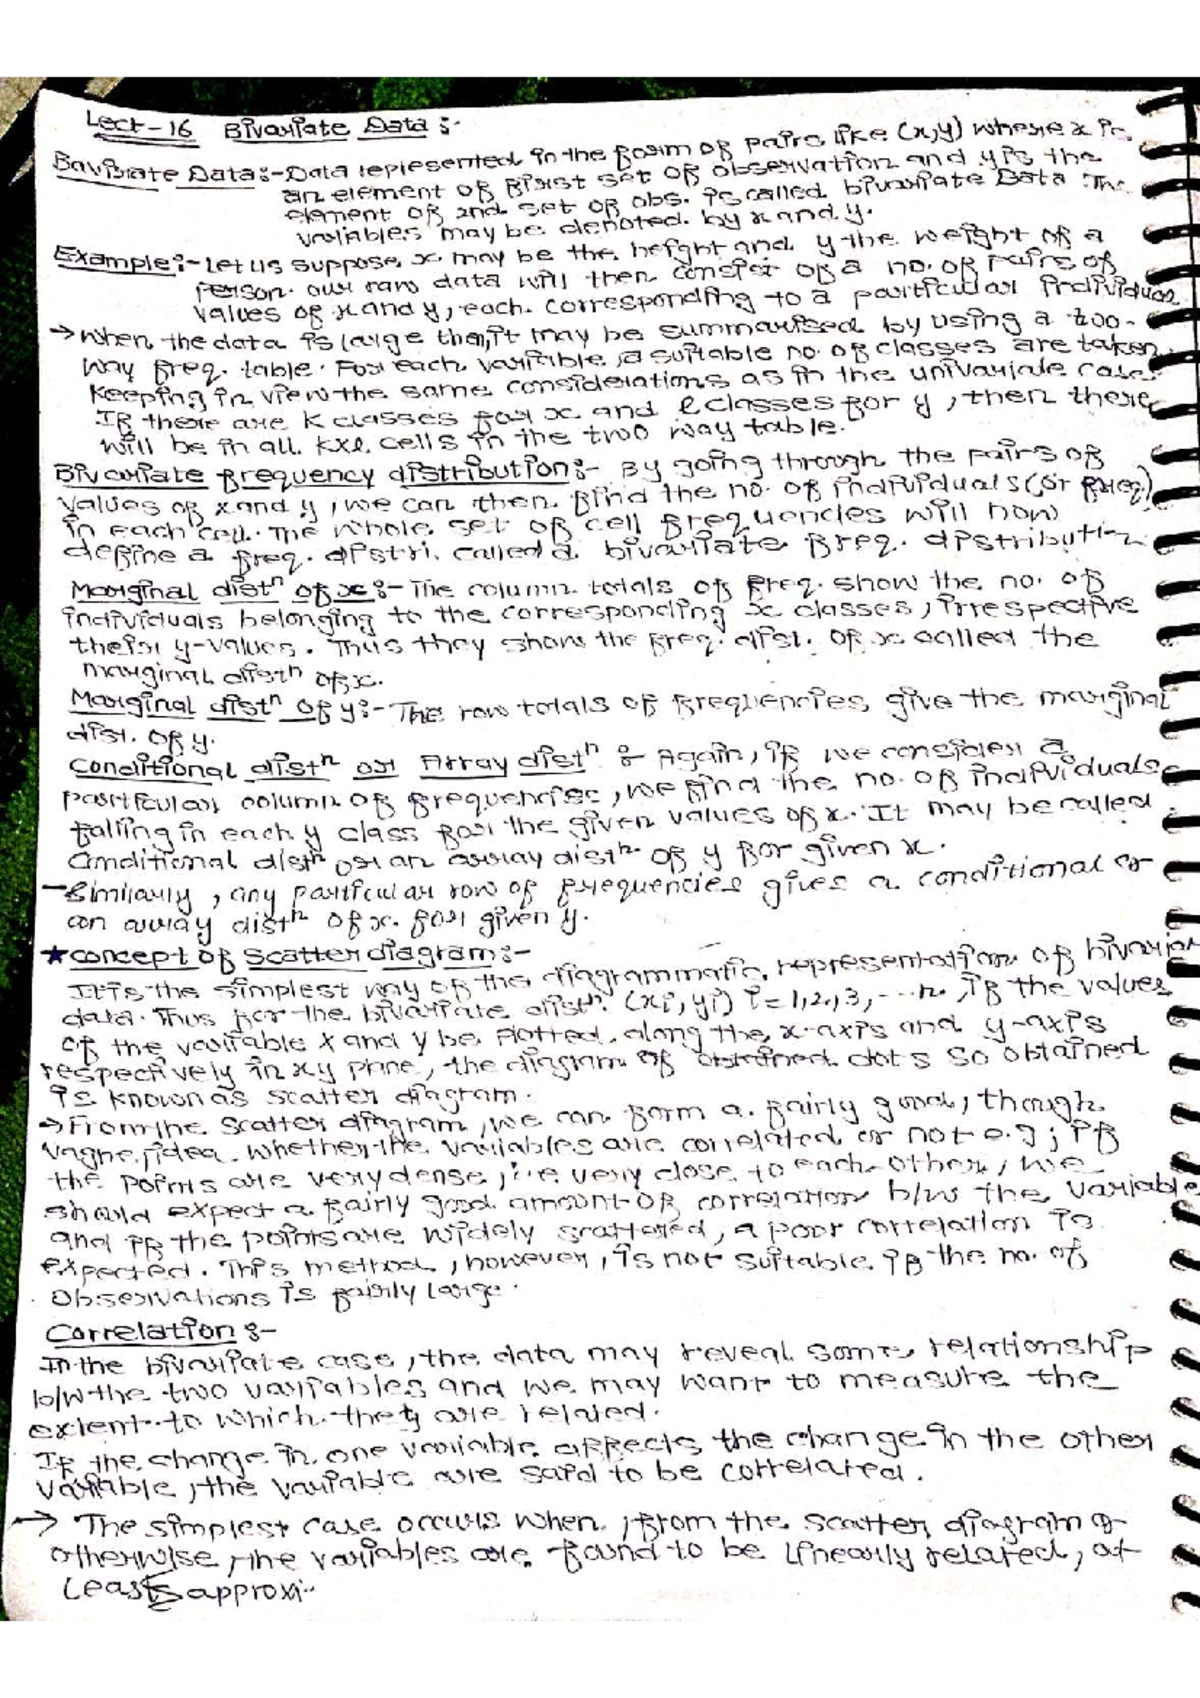 Lect-16 Bivariate Data :-
Bavirate Data:- Data represented in the form of pairs like (x,y) where x is
an element of first set of observation and y is the
element of 2nd set of obs. is called bivariate Data. The
variables may be denoted by x and y.
Example:- Let us suppose x may be the height and y the weight of a
person. our raw data will then consist of a no. of pairs of
values of x and y, each corresponding to a particular individual
→ when the data is large then, it may be summarised by using a two-
way freq. table. For each variable, a suitable no. of classes are taken.
Keeping in view the same considerations as in the univariate case.
If there are K classes for x and l classes for y, then there
will be in all kxl cells in the two way table.
Bivariate frequency distribution:- By going through the pairs of
values of x and y, we can then find the no. of individuals (or freq.)
in each cell. The whole set of cell frequencies will now
define a freq. distri. called a bivariate freq. distribution
Marginal distn of x:- The column totals of freq. show the no. of
individuals belonging to the corresponding x classes, irrespective
their y-values. Thus they show the freq. dist. of x called the
marginal distn of x.
Marginal distn of y:- The row totals of frequencies give the marginal
dist. of y.
Conditional distn or Array distn :- Again, if we consider a
particular column of frequencies, we find the no. of individuals
falling in each y class for the given values of x. It may be called
Conditional distn or an array distn of y for given x.
- Similarly, any particular row of frequencies gives a conditional or
an array distn of x for given y.
★ concept of Scatter diagram:-
It is the simplest way of the diagrammatic representation of bivariat
data. Thus for the bivariate distn. (xi, yi) i=1,2,3,---n, if the values
of the variable x and y be plotted along the x-axis and y-axis
respectively in xy plane, the diagram of dots so obtained
is known as scatter diagram.
→ From the scatter diagram, we can form a fairly good, though
vague, idea whether the variables are correlated or not e.g; if
the points are very dense, i.e very close to each other, we
should expect a fairly good amount of correlation b/w the variable
and if the points are widely scattered, a poor correlation is
expected. This method, however, is not suitable if the no. of
observations is fairly large.
Correlation :-
In the bivariate case, the data may reveal some relationship
b/w the two variables and we may want to measure the
extent to which they are related.
If the change in one variable affects the change in the other
variable, the variable are said to be correlated.
→ The simplest case occurs when, from the scatter diagram or
otherwise, the variables are found to be linearly related, at
least approxi..